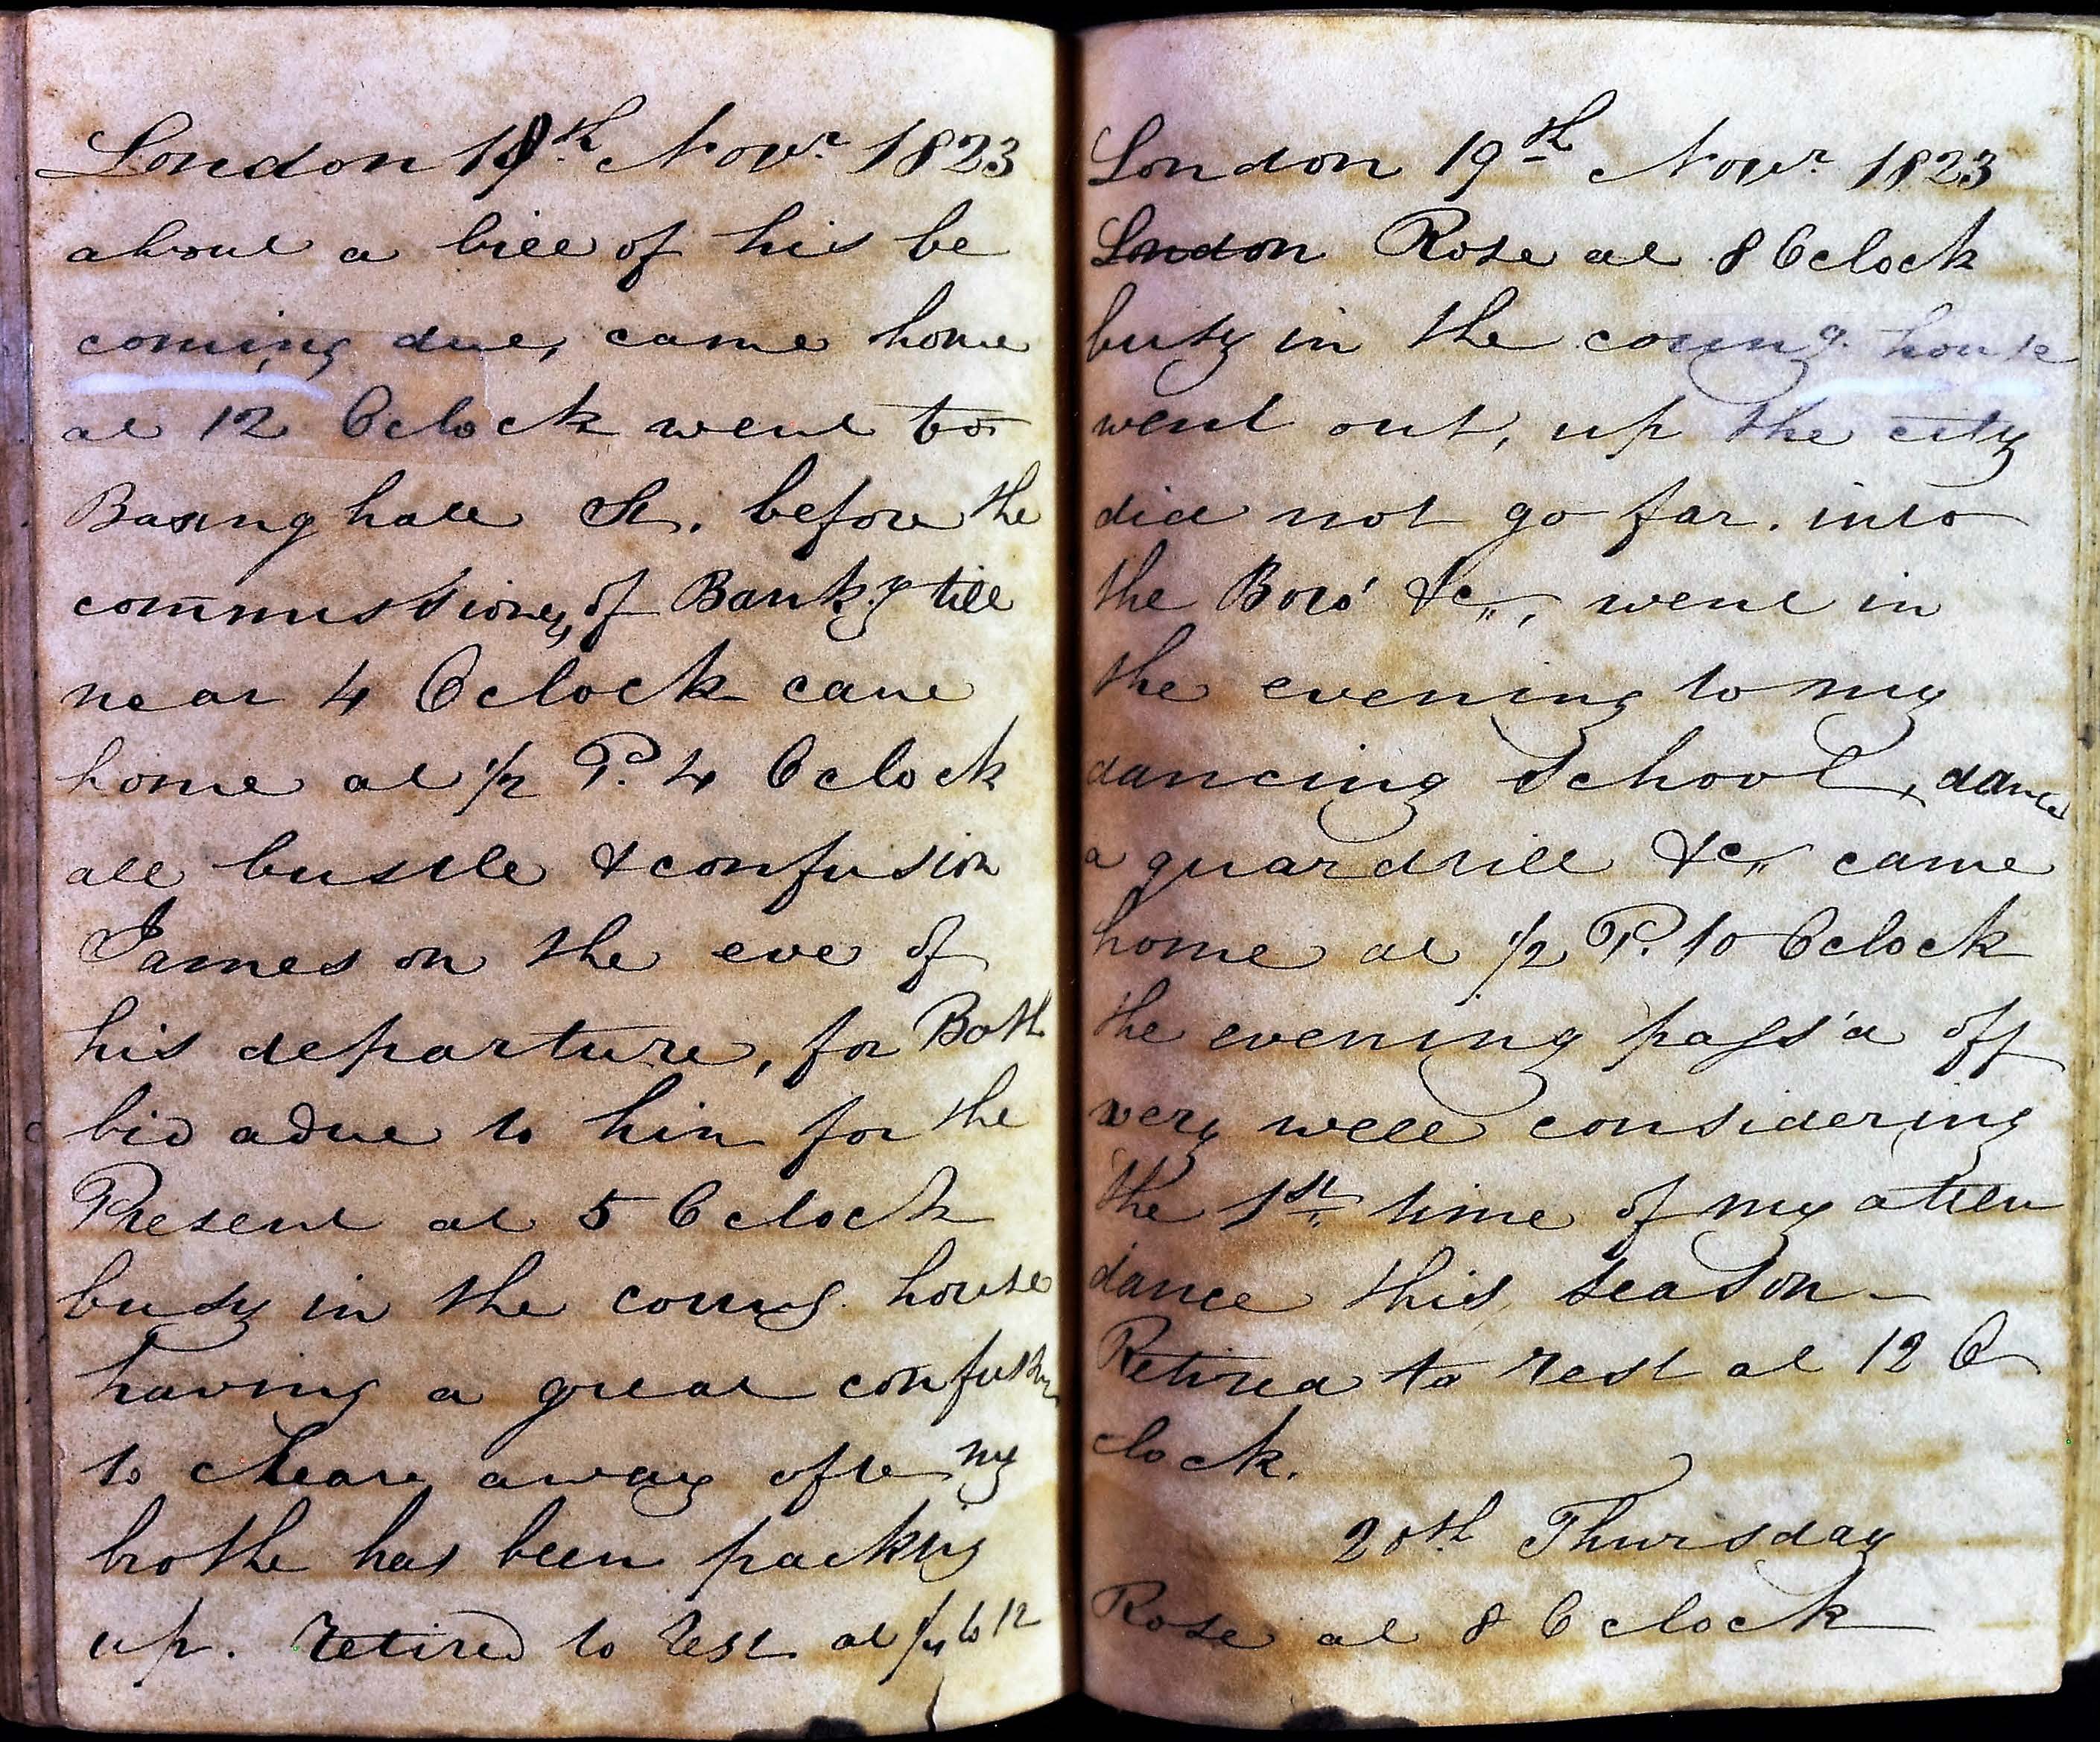 London 18th Novr. 1823
about a bill of his be
coming due, came home
at 12 Oclock went to
Basinghall St. before the
commissioners, of Bankcy till
near 4 Oclock came
home at 1/2 P. 4 Oclock
all bustle & confusion
James on the eve of
his departure, for Bath
bid adue to him for the
Present at 5 Oclock
busy in the coung. house
having a great confusion
to cleare away afte my
brothe has been packing
up. retired to rest at 1/4 to 12
London 19th Novr. 1823
London Rose at 8 Oclock
busy in the coung. house
went out, up the city
did not go far. into
the Boro' &c,, went in
the evening to my
dancing school, danced
a quardrill &c,, came
home at 1/2 P. 10 Oclock
the evening pass'd off
very well considering
the 1st. time of my atten
dance this season -
Retired to rest at 12 O
clock.
20th. Thursday
Rose at 8 Oclock